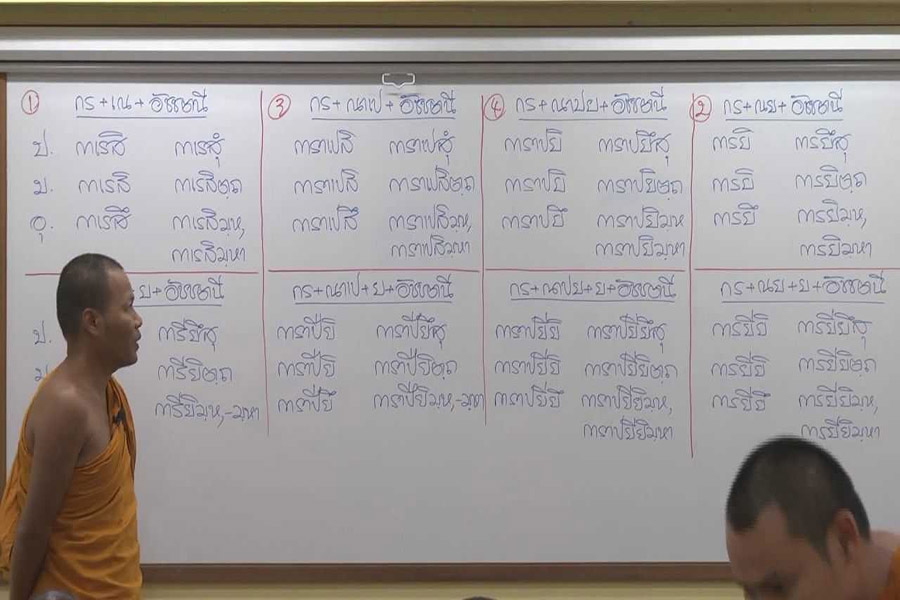 ① กร + เณ +
ป. กาเรสิ กาเรสุํ
ม. กาเรสิ กาเรสิตฺถ
อุ. กาเรสึ กาเรสิมฺห,
กาเรสิมฺหา
ย +
ป. การียึสุ
ม. การียิตฺถ
การียิมฺห,-มฺหา
③ กร + ณาเป +
การาเปสิ การาเปสุํ
การาเปสิ การาเปสิตฺถ
การาเปสึ การาเปสิมฺห,
การาเปสิมฺหา
กร + ณาเป + ย +
การาปียิ การาปียึสุ
การาปียิ การาปียิตฺถ
การาปียึ การาปียิมฺห,-มฺหา
④ กร + ณาปย +
การาปยิ การาปยึสุ
การาปยิ การาปยิตฺถ
การาปยึ การาปยิมฺห
การาปยิมฺหา
กร + ณาปย + ย +
การาปยียิ การาปยียึสุ
การาปยียิ การาปยียิตฺถ
การาปยียึ การาปยียิมฺห,
การาปยียิมฺหา
② กร + ณย +
การยิ การยึสุ
การยิ การยิตฺถ
การยึ การยิมฺห,
การยิมฺหา
กร + ณย + ย +
การยียิ การยียึสุ
การยียิ การยียิตฺถ
การยียึ การยียิมฺห,
การยียิมฺหา